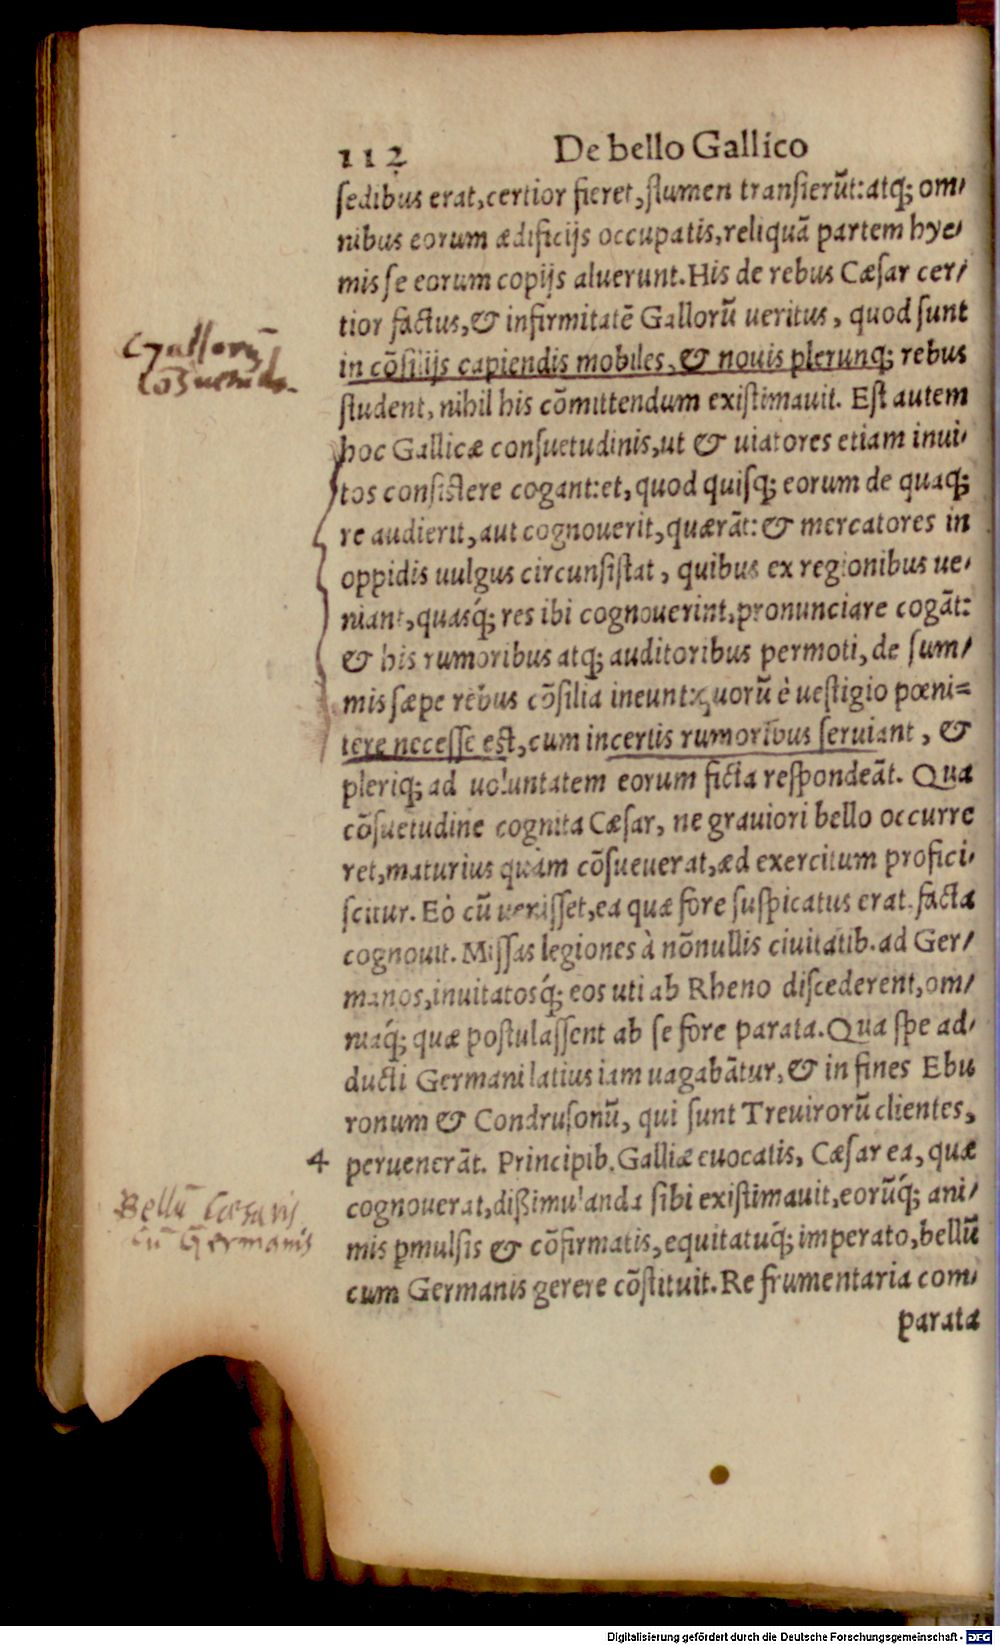 112 De bello Gallico
sedibus erat, certior fieret, flumen transierūt: atq; om/
nibus eorum ædificijs occupatis, reliquā partem hye/
mis se eorum copijs aluerunt. His de rebus Cæsar cer/
tior factus, & infirmitatē Gallorū ueritus, quod sunt
in cōsilijs capiendis mobiles, & nouis plerunq; rebus
student, nihil his cōmittendum existimauit. Est autem
hoc Gallicæ consuetudinis, ut & uiatores etiam inui/
tos consistere cogant: et, quod quisq; eorum de quaq;
re audierit, aut cognouerit, quærāt: & mercatores in
oppidis uulgus circunsistat, quibus ex regionibus ue/
niant, quasq́; res ibi cognouerint, pronunciare cogāt:
& his rumoribus atq; auditoribus permoti, de sum/
mis sæpe rebus cōsilia ineunt: quorū è uestigio pœni=
tere necesse est, cum incertis rumoribus seruiant, &
pleriq; ad uoluntatem eorum ficta respondeāt. Qua
cōsuetudine cognita Cæsar, ne grauiori bello occurre
ret, maturius quàm cōsueuerat, æd exercitum profici/
scitur. Eò cū uenisset, ea quæ fore suspicatus erat, facta
cognouit. Missas legiones à nōnullis ciuitatib. ad Ger/
manos, inuitatosq́; eos uti ab Rheno discederent, om/
niaq́; quæ postulassent ab se fore parata. Qua spe ad/
ducti Germani latius iam uagabātur, & in fines Ebu
ronum & Condrusonū, qui sunt Treuirorū clientes,
4 peruenerāt. Principib. Galliæ euocatis, Cæsar ea, quæ
cognouerat, dißimulanda sibi existimauit, eorūq́; ani/
mis ꝑmulsis & cōfirmatis, equitatuq́; imperato, bellū
cum Germanis gerere cōstituit. Re frumentaria com/
parata
Gallorū
Bellū Cæsaris
cū Germanis
Digitalisierung gefördert durch die Deutsche Forschungsgemeinschaft - DFG